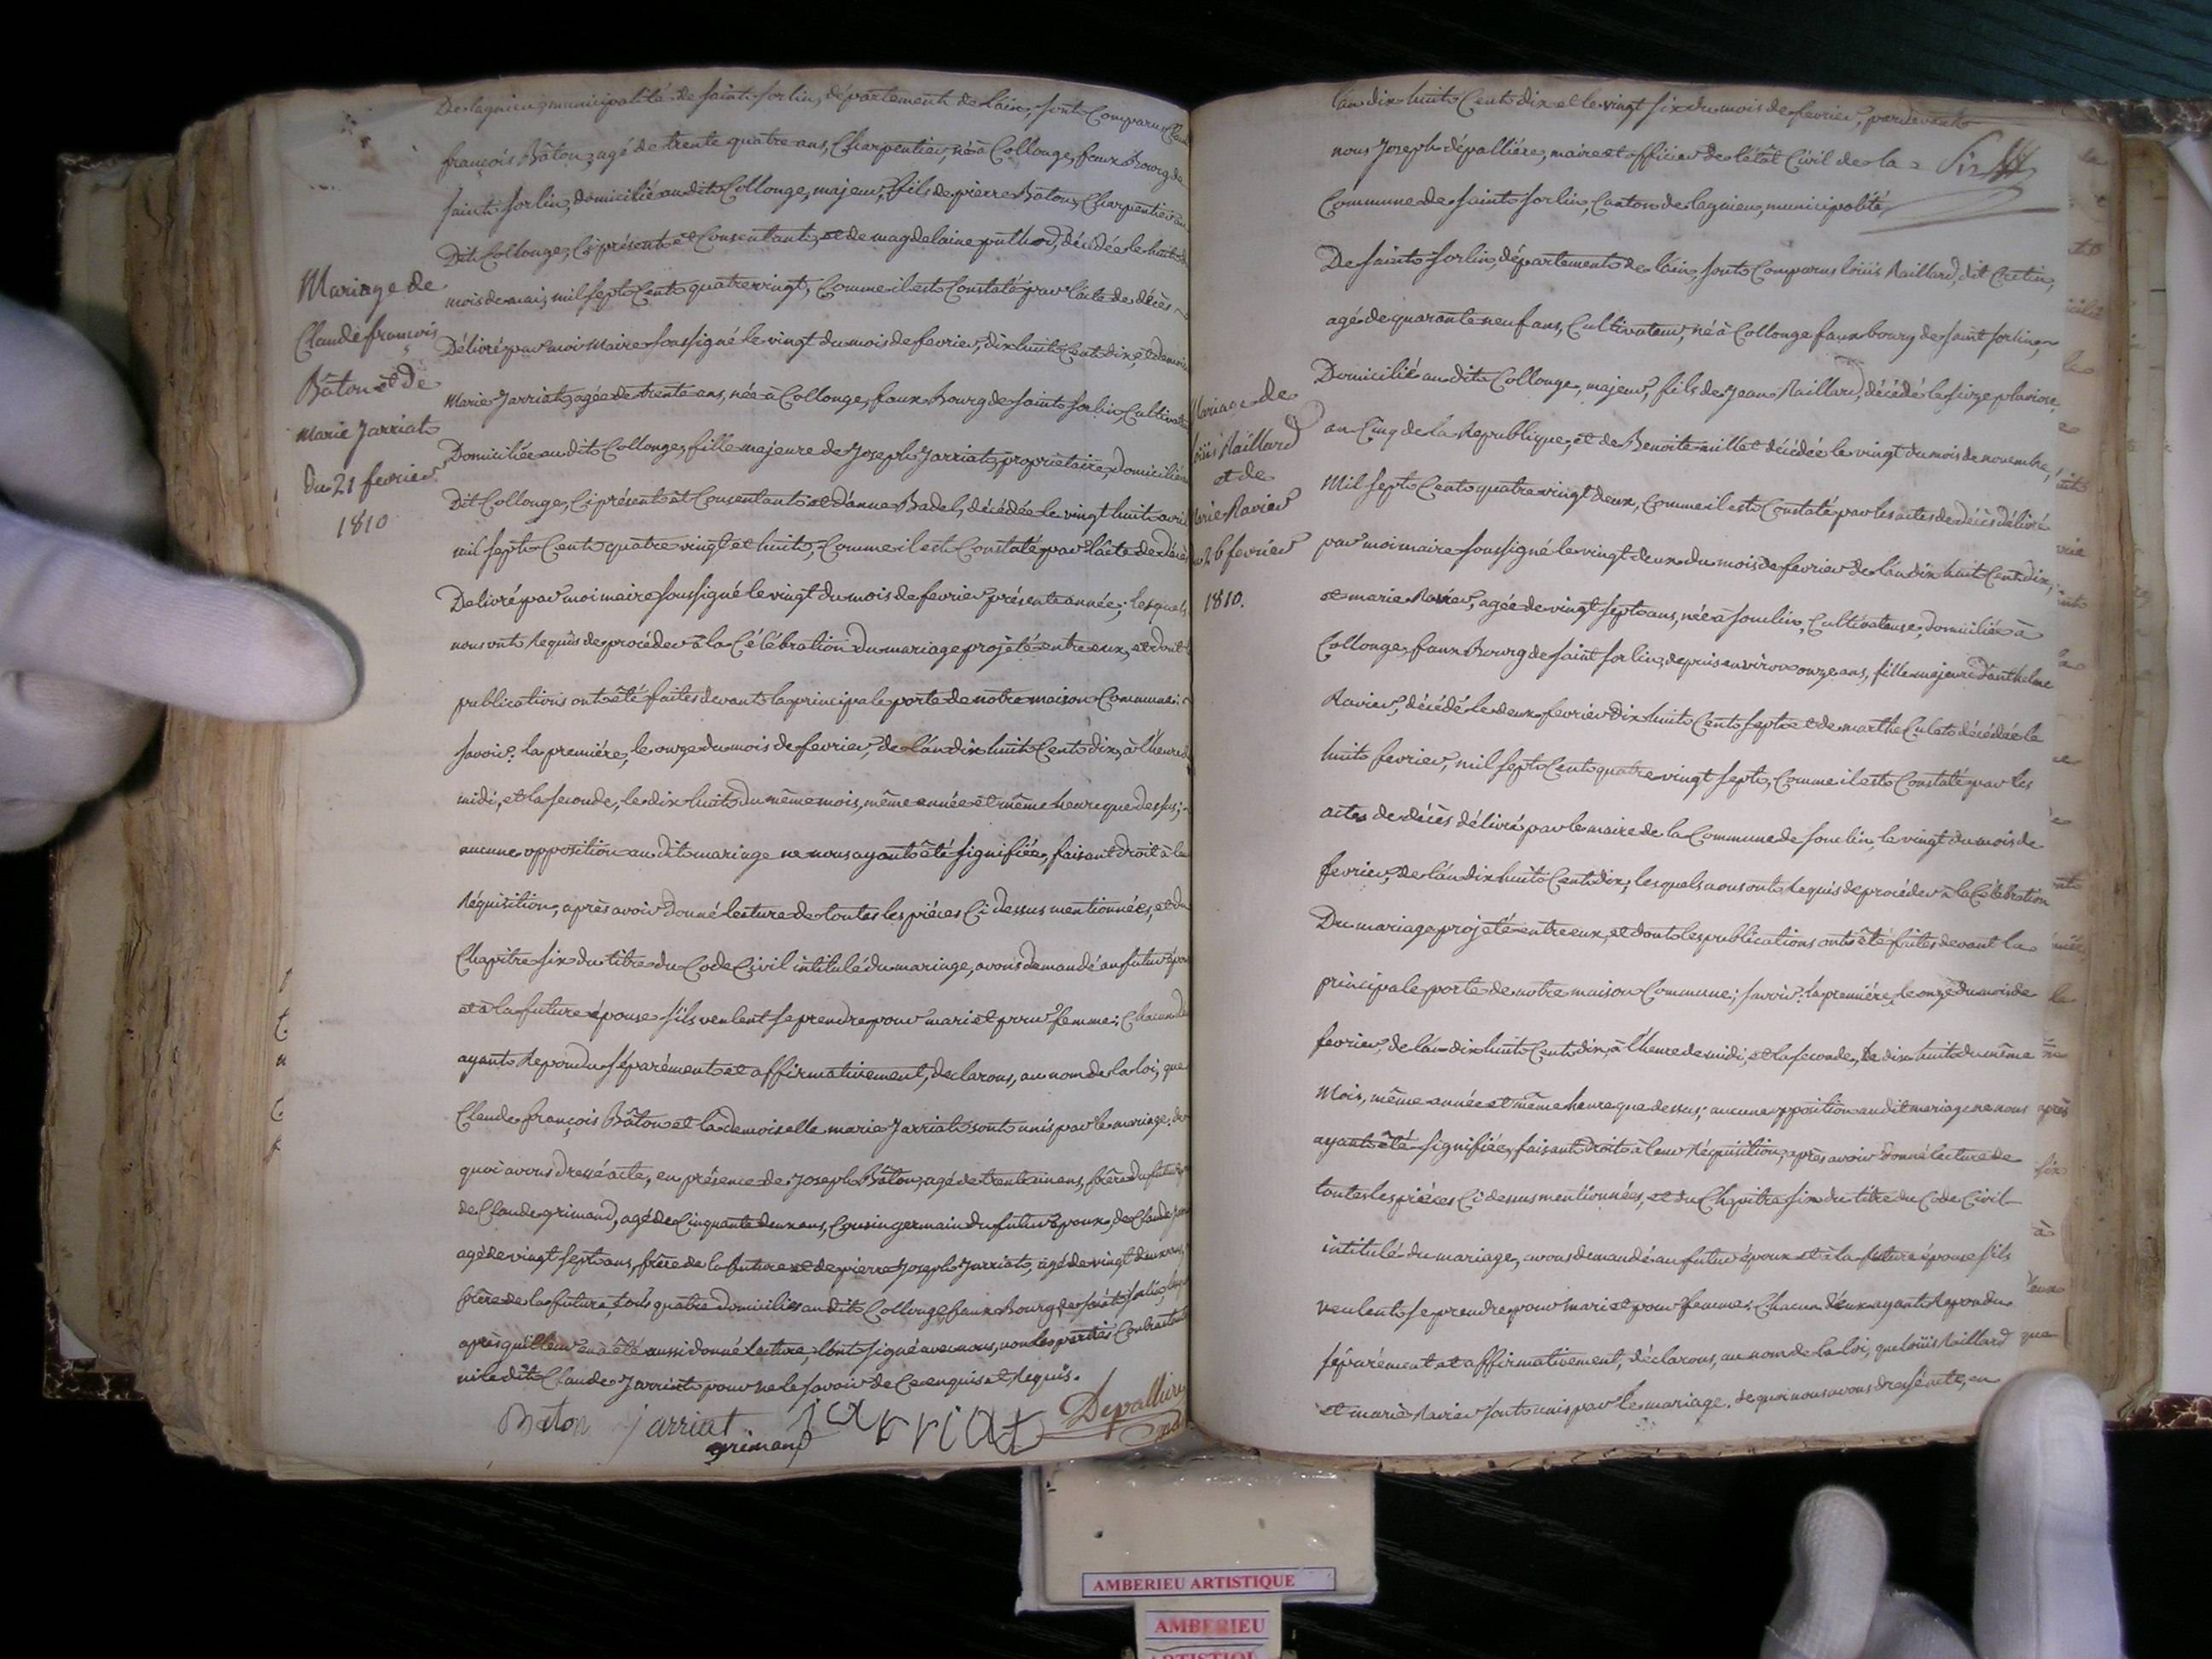 De lagnieu, municipalité de saint sorlin, département de lain, sont Comparus
françois Bâton, agé de trente quatre ans, Charpentier, né à Collonge, faux Bourg de
saint sorlin, domicilié au dit Collonge, majeur, fils de pierre Bâton, Charpentier au
Dit Collonge, Ci présent et Consentant, et de magdelaine décédée le huit
mois de mai, mil sept Cent quatre vingt, Comme il est Constaté par l'acte de décès
Délivré par moi Maire soussigné le vingt du mois de fevrier, dix huit Cent dix, et
Marie Jarriat, agée de trente ans, née à Collonge, faux Bourg de saint sorlin,
Domiciliée au dit Collonge, fille majeure de Joseph Jarriat, propriétaire, domicilié
Dit Collonge, Ci présent et Consentant et d'anne Badel, décédée le vingt huit avril
mil sept Cent quatre vingt et huit, Comme il est Constaté par l'acte de décès
Delivré par moi maire soussigné le vingt du mois de fevrier présente année; lesquels
nous ont Requis de procéder à la Célébration du mariage projeté entre eux, et dont
publications ont été faites devant la principale porte de notre maison Commune:
savoir: la première, le onze du mois de fevrier, de l'an dix huit Cent dix, à l'heure de
midi, et la seconde, le dix huit du même mois, même année et même heure que dessus;
aucune opposition au dit mariage ne nous ayant été signifiée, faisant droit à leur
Réquisition, après avoir donné lecture de toutes les pièces Ci dessus mentionnées, et du
Chapitre six du titre du Code Civil intitulé du mariage, avons demandé au futur
et à la future épouse s'ils veulent se prendre pour mari et pour femme; Chacun
ayant Repondu séparément et affirmativement, declarons, au nom de la loi, que
Claude françois Bâton et la demoiselle marie Jarriat sont unis par le mariage. de
quoi avons dressé acte, en présence de Joseph Bâton, agé de trente un ans, frère du futur
de Claude grimand, agé de Cinquante deux ans, Cousin germain du futur époux, de Claude
agé de vingt sept ans, frère de la future et de pierre Joseph Jarriat, agé de vingt deux ans,
frère de la future, tous quatre domiciliés au dit Collonge faux Bourg de saint sorlin,
après qu'il leur en a été aussi donné lecture, l'ont signé avec nous, non les parties Contractantes
ni le dit Claude Jarriat pour ne le savoir de Ce enquis et Requis.
Baton Jarriat jarriat Depalliere
grimand
Mariage de
Claude françois
Bâton et de
Marie Jarriat
du 21 fevrier
1810
l'an dix huit Cent dix et le vingt six du mois de fevrier, pardevant
nous Joseph dépallière, maire et officier de l'état Civil de la
Commune de saint sorlin, Canton de lagnieu, municipalité
De saint sorlin, département de lain, sont Comparus loüis Raillard, dit Cretin,
agé de quarante neuf ans, Cultivateur, né à Collonge faux bourg de saint sorlin,
Domicilié au dit Collonge, majeur, fils de Jean Raillard, décédé le seize pluviose,
an Cinq de la Republique, et de Benoite millet décédée le vingt du mois de novembre,
Mil sept Cent quatre vingt deux, Comme il est Constaté par les actes de décès délivré
par moi maire soussigné le vingt deux du mois de fevrier de l'an dix huit Cent dix,
et marie Ravier, agée de vingt sept ans, née à souclin, Cultivateuse, domiciliée à
Collonge, faux Bourg de saint sorlin, depuis environ onze ans, fille majeure d'anthelme
Ravier, décédé le deux fevrier dix huit Cent sept et de marthe Culat décédée le
huit fevrier, mil sept Cent quatre vingt sept, Comme il est Constaté par les
actes de décès délivré par le maire de la Commune de souclin, le vingt du mois de
fevrier, de l'an dix huit Cent dix; lesquels nous ont Requis de procéder à la Célébration
Du mariage projeté entre eux, et dont les publications ont été faites devant la
principale porte de notre maison Commune; savoir: la première, le onze du mois de
fevrier, de l'an dix huit Cent dix, à l'heure de midi, et la seconde, le dix huit du même
Mois, même année et même heure que dessus; aucune opposition au dit mariage ne nous
ayant été signifiée, faisant droit à leur Réquisition, après avoir donné lecture de
toutes les pièces Ci dessus mentionnées, et du Chapitre six du titre du Code Civil
intitulé du mariage, avons demandé au futur époux et à la future épouse s'ils
veulent se prendre pour mari et pour femme; Chacun d'eux ayant Repondu
séparément et affirmativement, déclarons, au nom de la loi, que loüis Raillard
et marie Ravier sont unis par le mariage. de quoi nous avons dressé acte, en
Mariage de
loüis Raillard
et de
Marie Ravier
du 26 fevrier
1810.
AMBERIEU ARTISTIQUE
AMBERIEU
ARTISTIQUE